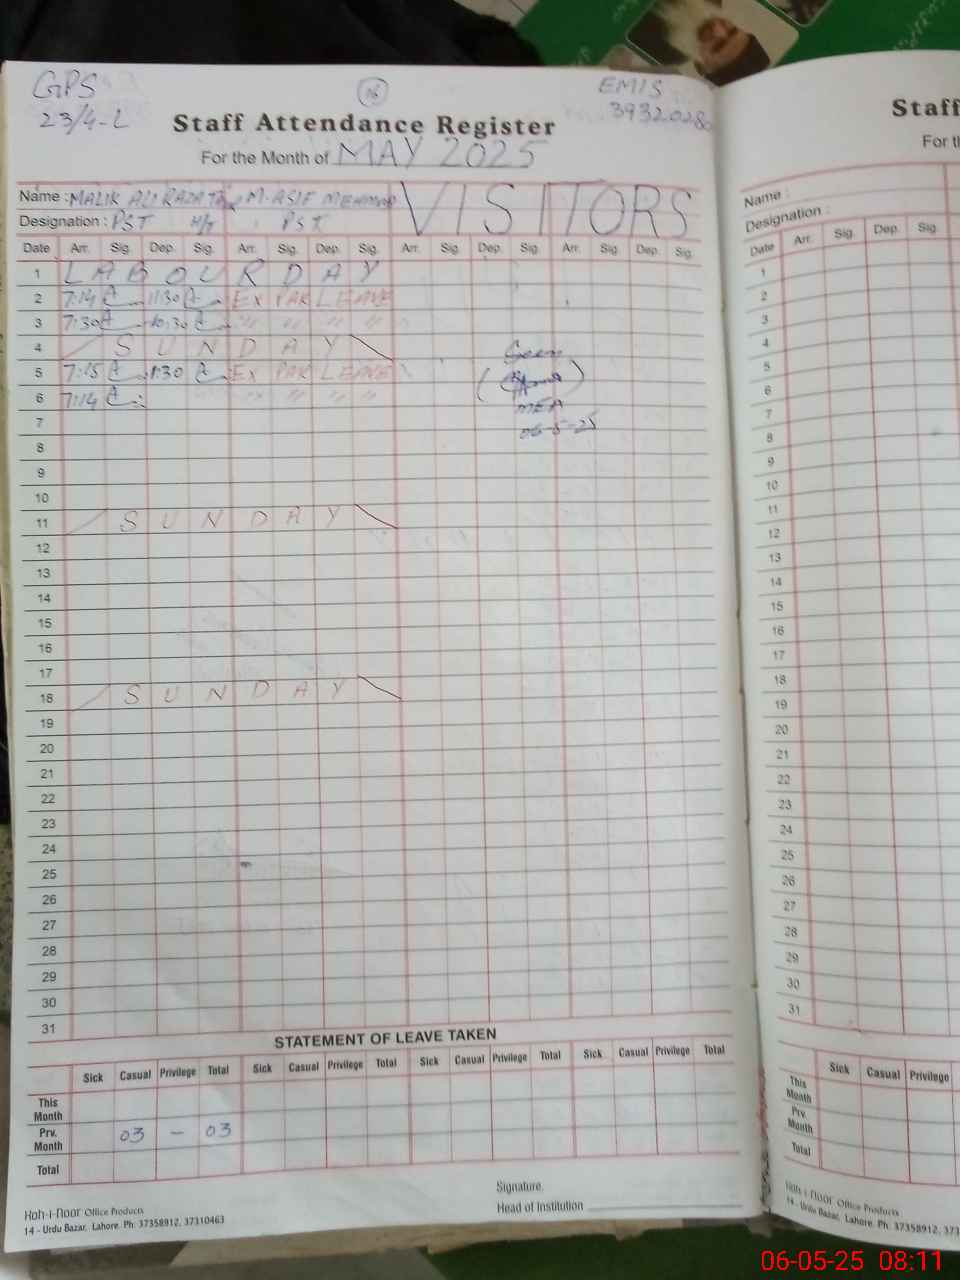 GPS
23/4-L
16
EMIS
39320280
Staff Attendance Register
For the Month of MAY 2025
Name : MALIK ALI RAZA M. ASIF MEHMOOD VISITORS
Designation : PST H/T PST
Date Arr. Sig. Dep. Sig. Arr. Sig. Dep. Sig. Arr. Sig. Dep. Sig. Arr. Sig. Dep. Sig.
1 LABOUR DAY
2 7:14 11:30 EX PAK LEAVE
3 7:30 10:30 " " " "
4 SUNDAY
Seen
5 7:15 1:30 EX PAK LEAVE
6 7:14 " " " "
MEA
7 06-5-25
8
9
10
11 SUNDAY
12
13
14
15
16
17
18 SUNDAY
19
20
21
22
23
24
25
26
27
28
29
30
31
STATEMENT OF LEAVE TAKEN
Sick Casual Privilege Total Sick Casual Privilege Total Sick Casual Privilege Total Sick Casual Privilege Total
This Month
Prv. Month 03 — 03
Total
Signature.
Head of Institution
Koh-i-Noor Office Products
14 - Urdu Bazar, Lahore. Ph: 37358912, 37310463
Staff
For th
Name :
Designation :
Date Arr. Sig. Dep. Sig.
1
2
3
4
5
6
7
8
9
10
11
12
13
14
15
16
17
18
19
20
21
22
23
24
25
26
27
28
29
30
31
Sick Casual Privilege
This Month
Prv. Month
Total
Koh-i-Noor Office Products
14 - Urdu Bazar, Lahore. Ph: 37358912, 373
06-05-25 08:11